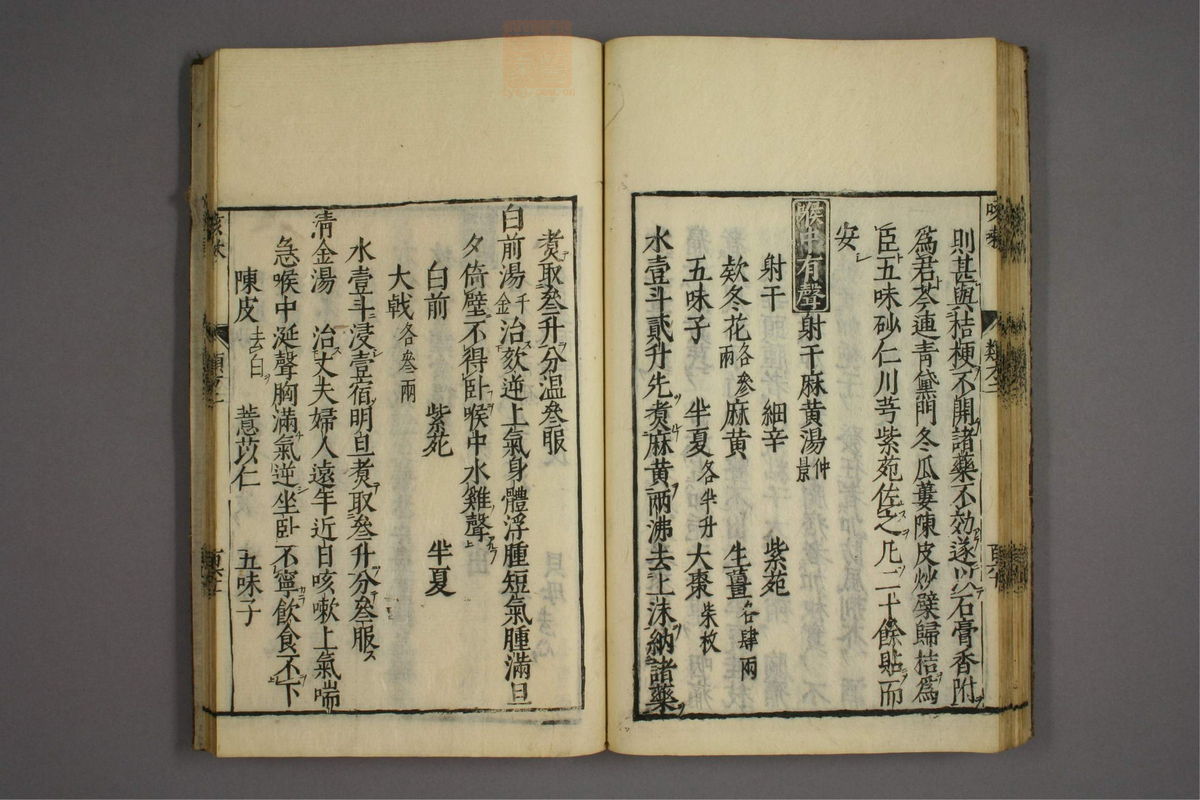 則甚與桔梗不開諸藥不効遂以石膏香附
爲君芩連青黛門冬瓜蔞陳皮炒檗歸桔爲
臣五味砂仁川芎紫苑佐之凡二十餘貼而
安
喉中有聲 射干麻黄湯 仲景
射干 細辛 紫苑
欸冬花 各叄兩 麻黄 生薑 各肆兩
五味子 半夏 各半升 大棗 柒枚
水壹斗貳升先煑麻黄兩沸去上沫納諸藥
煑取叄升分温叄服
白前湯 千金 治欬逆上氣身體浮腫短氣腫滿旦
夕倚壁不得卧喉中水雞聲
白前 紫苑 半夏
大戟 各叄兩
水壹斗浸壹宿明旦煑取叄升分叄服
清金湯 治丈夫婦人遠年近日咳嗽上氣喘
急喉中涎聲胸滿氣逆坐卧不寧飲食不下
陳皮 去白 薏苡仁 五味子